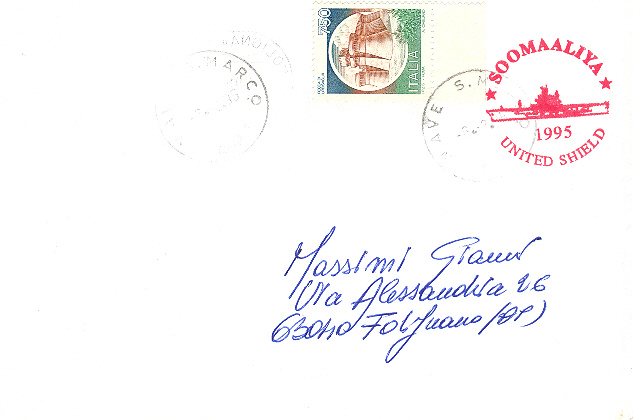 750
ITALIA
S. MARCO
NAVE S. M
★ SOOMAALIYA ★
1995
UNITED SHIELD
Massimi Gianni
Via Alessandria 26
63040 Folignano (AP)